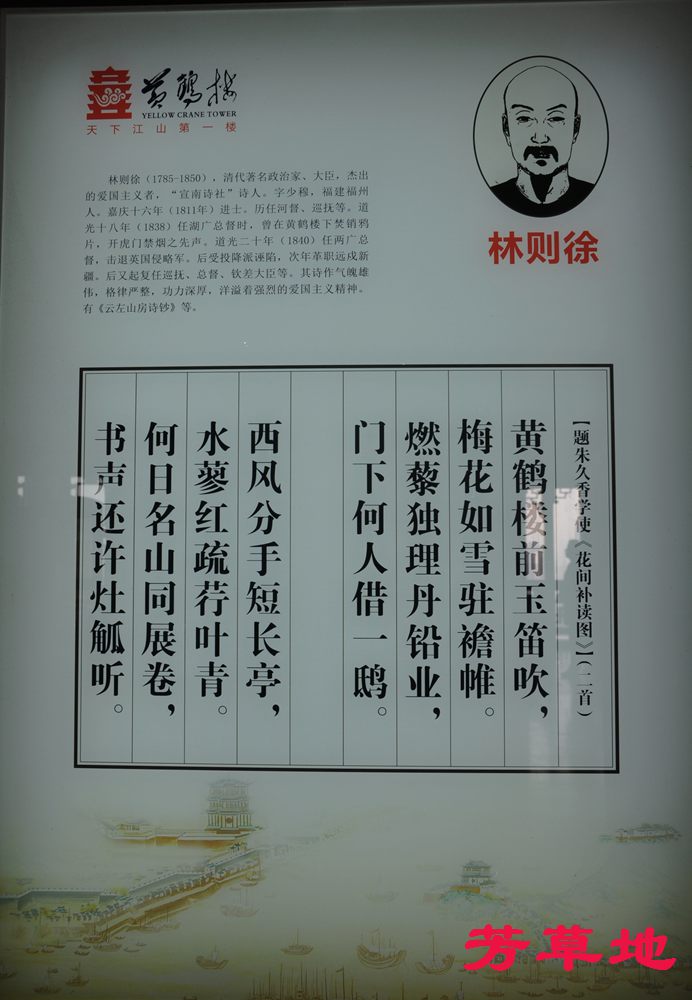 黄鹤楼
YELLOW CRANE TOWER
天下江山第一楼
林则徐
林则徐（1785-1850），清代著名政治家、大臣，杰出
的爱国主义者，“宣南诗社”诗人。字少穆，福建福州
人。嘉庆十六年（1811年）进士。历任河督、巡抚等。道
光十八年（1838）任湖广总督时，曾在黄鹤楼下焚销鸦
片，开虎门禁烟之先声。道光二十年（1840）任两广总
督，击退英国侵略军。后受投降派诬陷，次年革职远戍新
疆。后又起复任巡抚、总督、钦差大臣等。其诗作气魄雄
伟，格律严整，功力深厚，洋溢着强烈的爱国主义精神。
有《云左山房诗钞》等。
【题朱久香学使《花间补读图》】（二首）
黄鹤楼前玉笛吹，
梅花如雪驻襜帷。
燃藜独理丹铅业，
门下何人借一鸱。
西风分手短长亭，
水蓼红疏荇叶青。
何日名山同展卷，
书声还许灶觚听。
芳草地